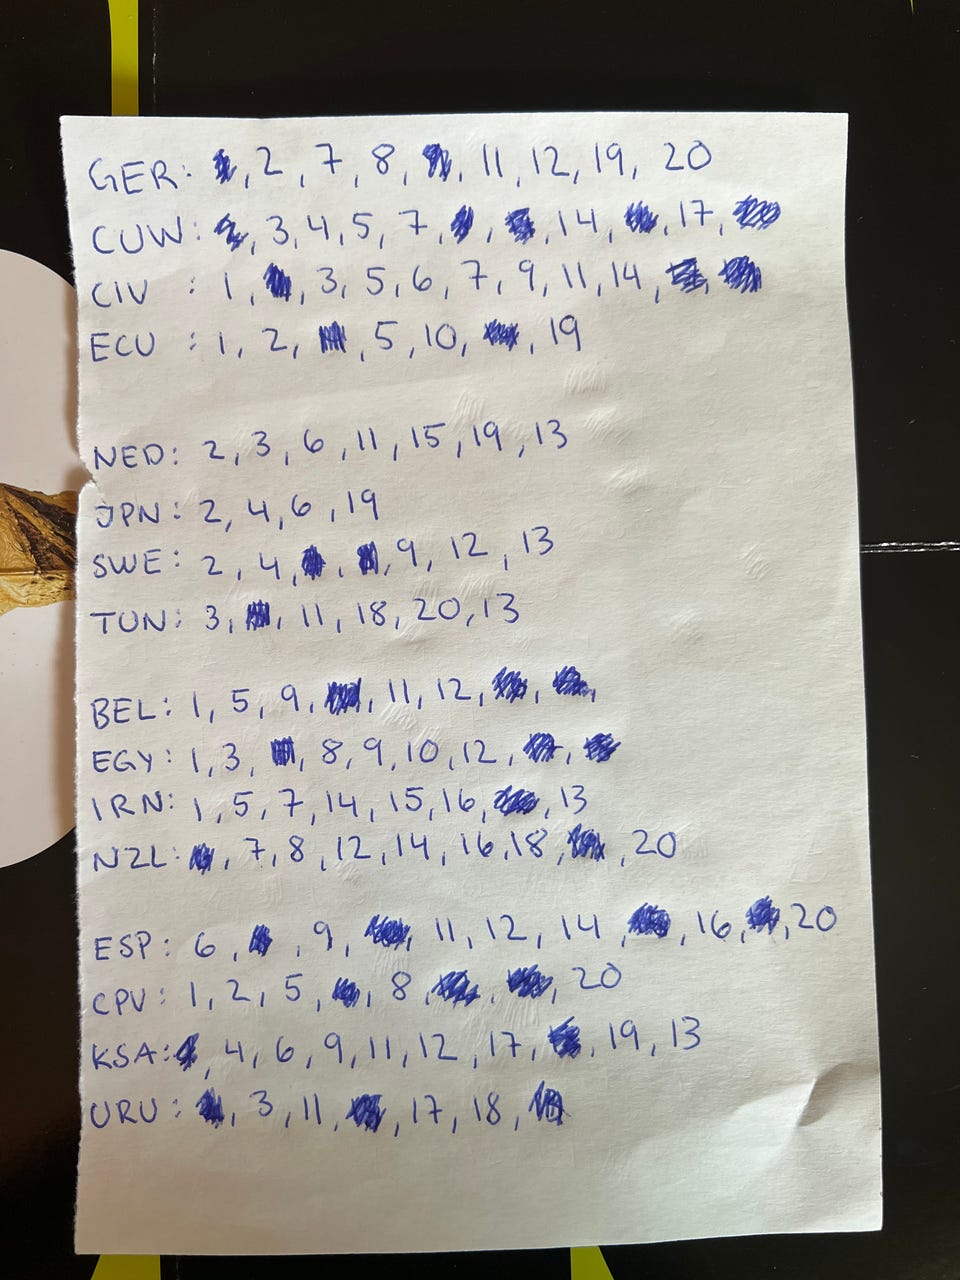 GER: 2, 7, 8, 11, 12, 19, 20
CUW: 3, 4, 5, 7, 14, 17,
CIV : 1, 3, 5, 6, 7, 9, 11, 14,
ECU : 1, 2, 5, 10, 19
NED: 2, 3, 6, 11, 15, 19, 13
JPN: 2, 4, 6, 19
SWE: 2, 4, 9, 12, 13
TUN: 3, 11, 18, 20, 13
BEL: 1, 5, 9, 11, 12,
EGY: 1, 3, 8, 9, 10, 12,
IRN: 1, 5, 7, 14, 15, 16, 13
NZL: 7, 8, 12, 14, 16, 18, 20
ESP: 6, 9, 11, 12, 14, 16, 20
CPV: 1, 2, 5, 8, 20
KSA: 4, 6, 9, 11, 12, 17, 19, 13
URU: 3, 11, 17, 18,